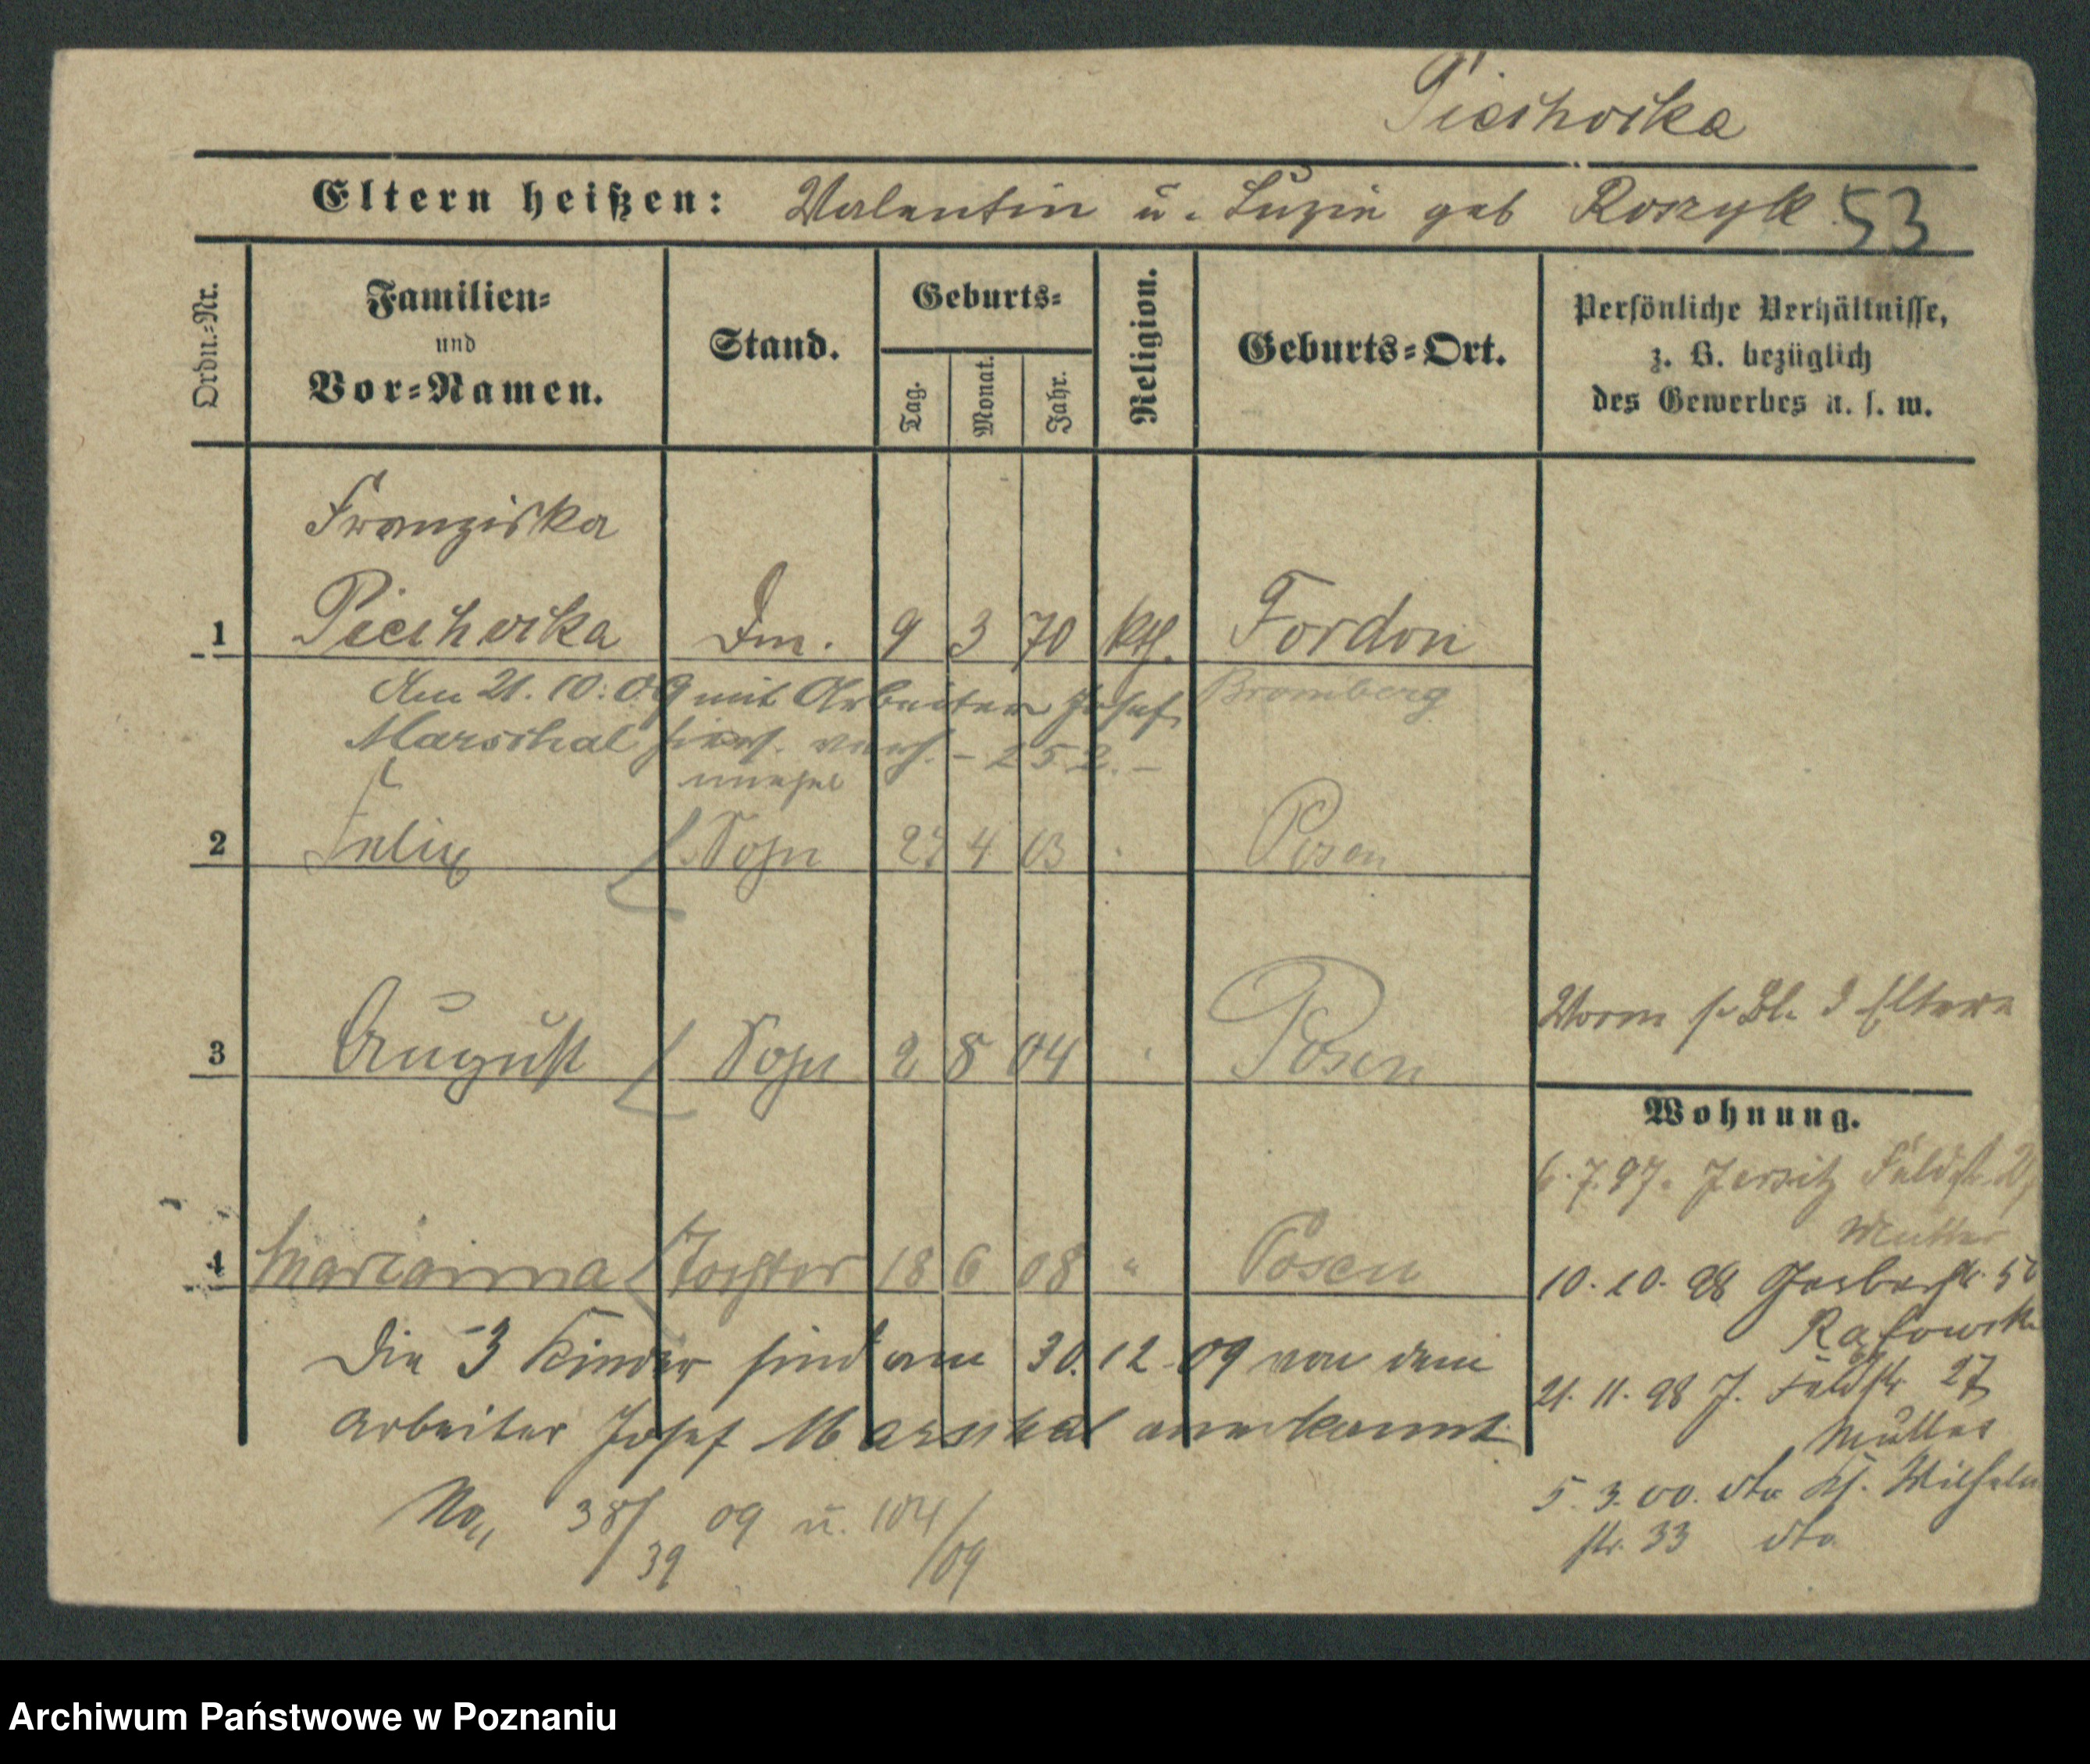 Piechocka
Eltern heißen: Valentin u. Luzie geb Roszyk 53
Ordn.-Nr.
Familien-
und
Vor-Namen.
Stand.
Geburts-
Tag.
Monat.
Jahr.
Religion.
Geburts-Ort.
Persönliche Verhältnisse,
z. B. bezüglich
des Gewerbes u. s. w.
Franziska
1 Piechocka 9 3 70 kth. Fordon
Am 21. 10. 09 mit Arbeiter Josef Bromberg
Marschal hier verh. - 252. -
unehel
2 Felix Sohn 4 03 Posen
3 August Sohn 2 8 04 " Posen
Vorm s. Bl. d Eltern
Wohnung.
4 Marianna Tochter 18 6 08 " Posen
Die 3 Kinder sind am 30. 12. 09 von dem
Arbeiter Josef Marschal anerkannt
No. 38/39 09 u. 104/09
6. 7. 97. Jersitz Feldstr.
Mutter
10. 10. 98 Gerberstr.
21. 11. 98 J. Feldstr 27
Mutter
5. 3. 00. dto Wilhelm
str. 33 dto
Archiwum Państwowe w Poznaniu